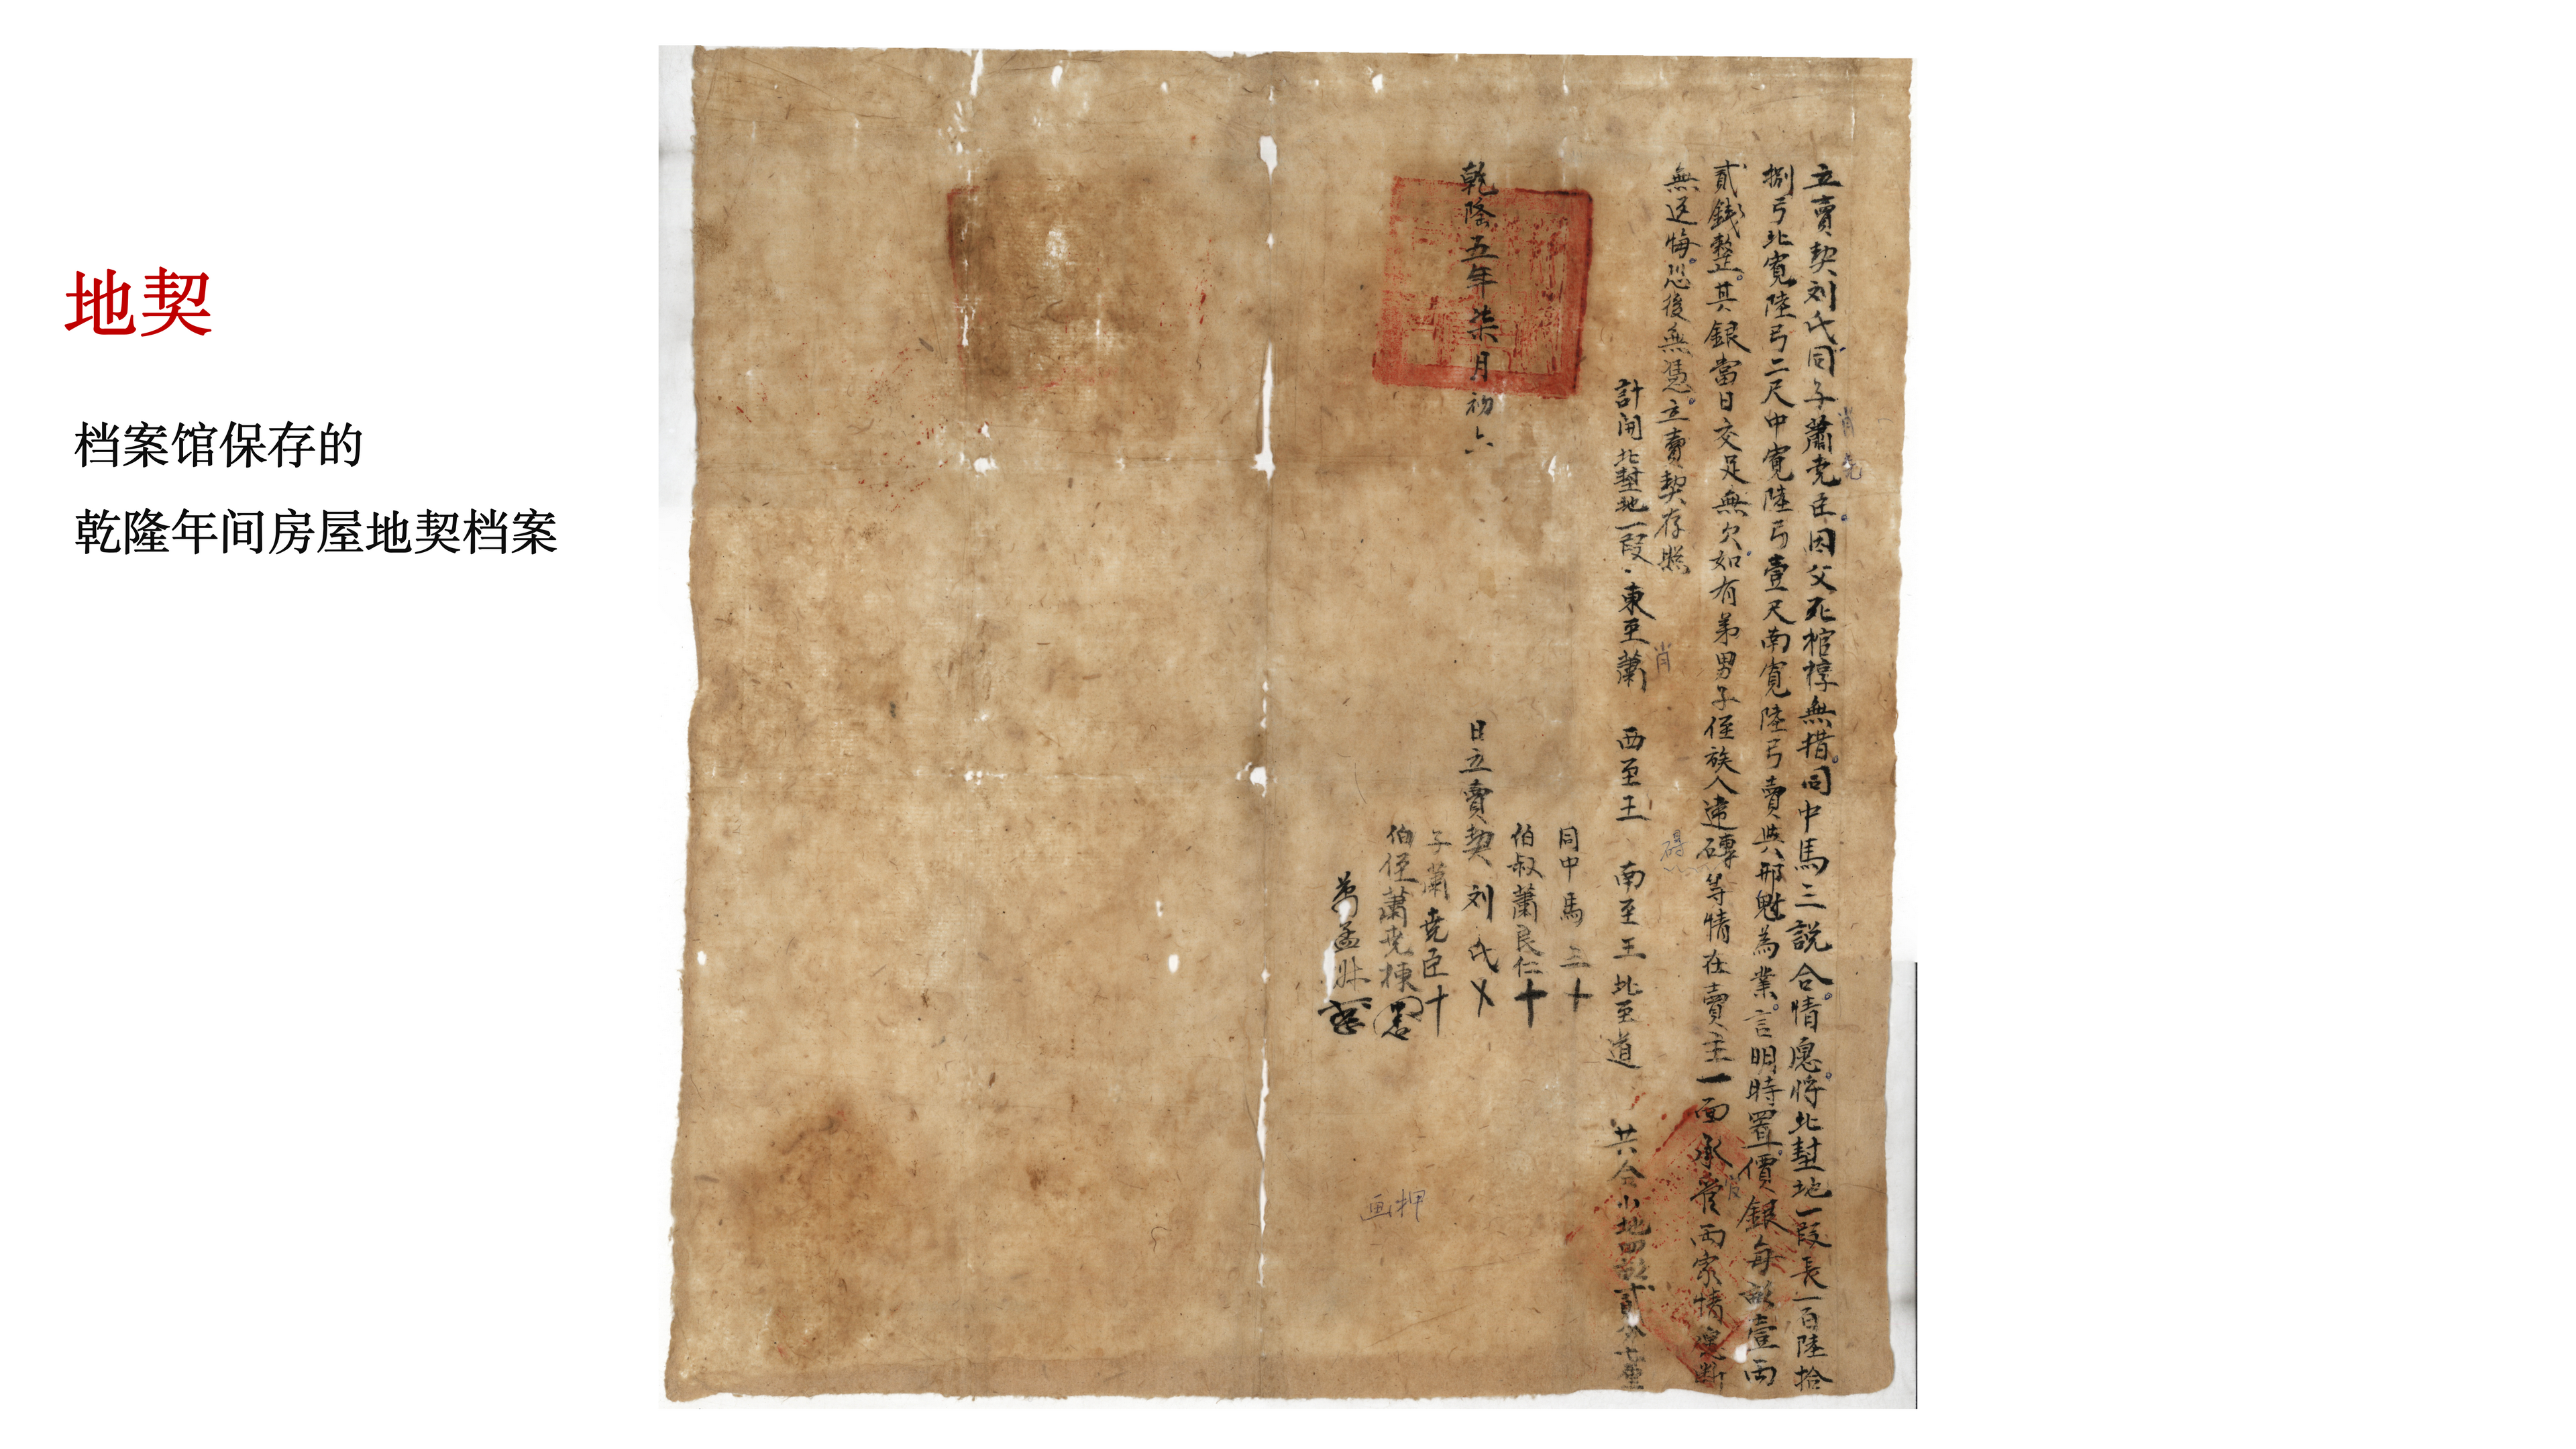 地契
档案馆保存的
乾隆年间房屋地契档案
立賣契刘氏同子蕭尭臣因父死棺椁無措同中馬三説合情愿將北塹地一段長一百陸拾
捌弓北寬陸弓二尺中寬陸弓壹尺南寬陸弓賣與邢魁為業言明時置價銀每畝壹兩
貳錢整其銀當日交足無欠如有弟男子侄族人違磚等情在賣主一面承當兩家情愿断
無返悔恐後無憑立賣契存照
計開北塹地一段東至蕭 西至王 南至王 北至道 共合小地四畝
乾隆五年柒月初六 日立賣契刘氏
同中馬三十
伯叔蕭良仁十
子蕭尭臣十
伯侄蕭尭棟
肖尭
肖
碍
画押